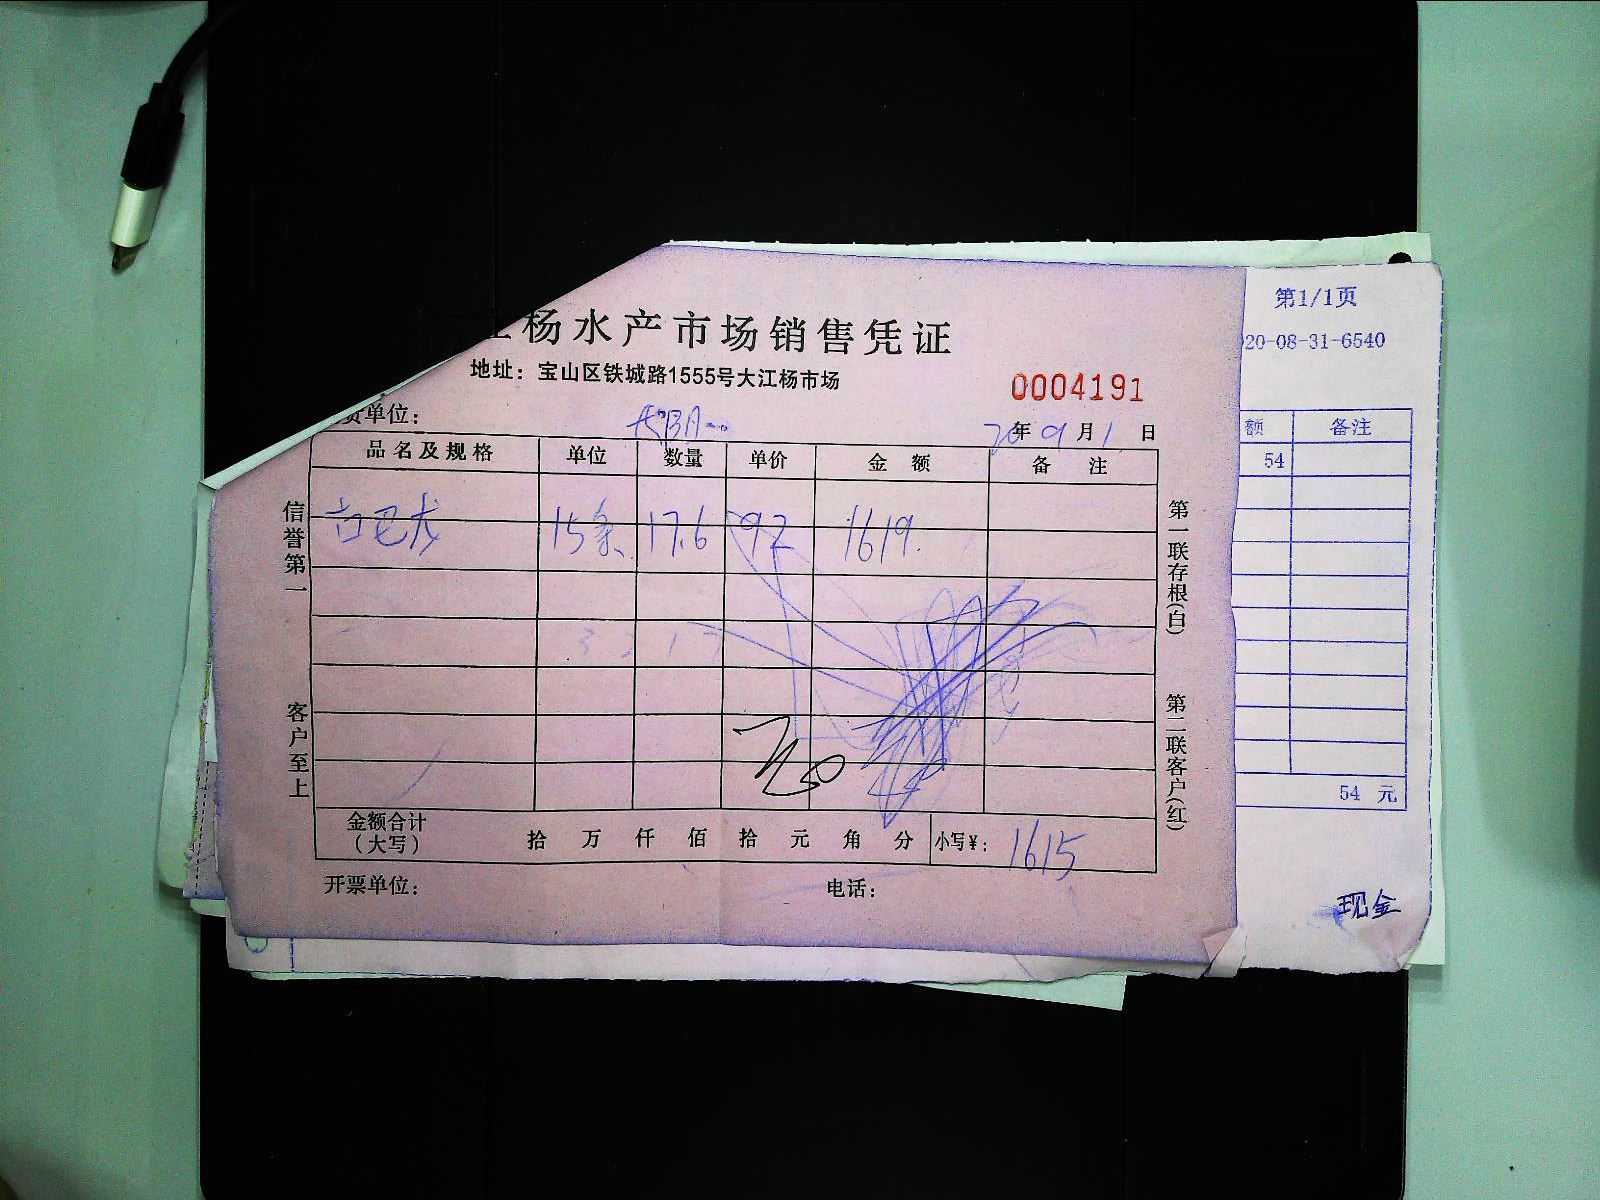 江杨水产市场销售凭证
地址：宝山区铁城路1555号大江杨市场
0004191
货单位：
20年9月1日
品名及规格 单位 数量 单价 金额 备注
15条 17.6 92 1619.
金额合计（大写） 拾 万 仟 佰 拾 元 角 分 小写¥： 1615
开票单位： 电话：
信誉第一
客户至上
第一联存根(白)
第二联客户(红)
第1/1页
20-08-31-6540
额 备注
54
54 元
现金